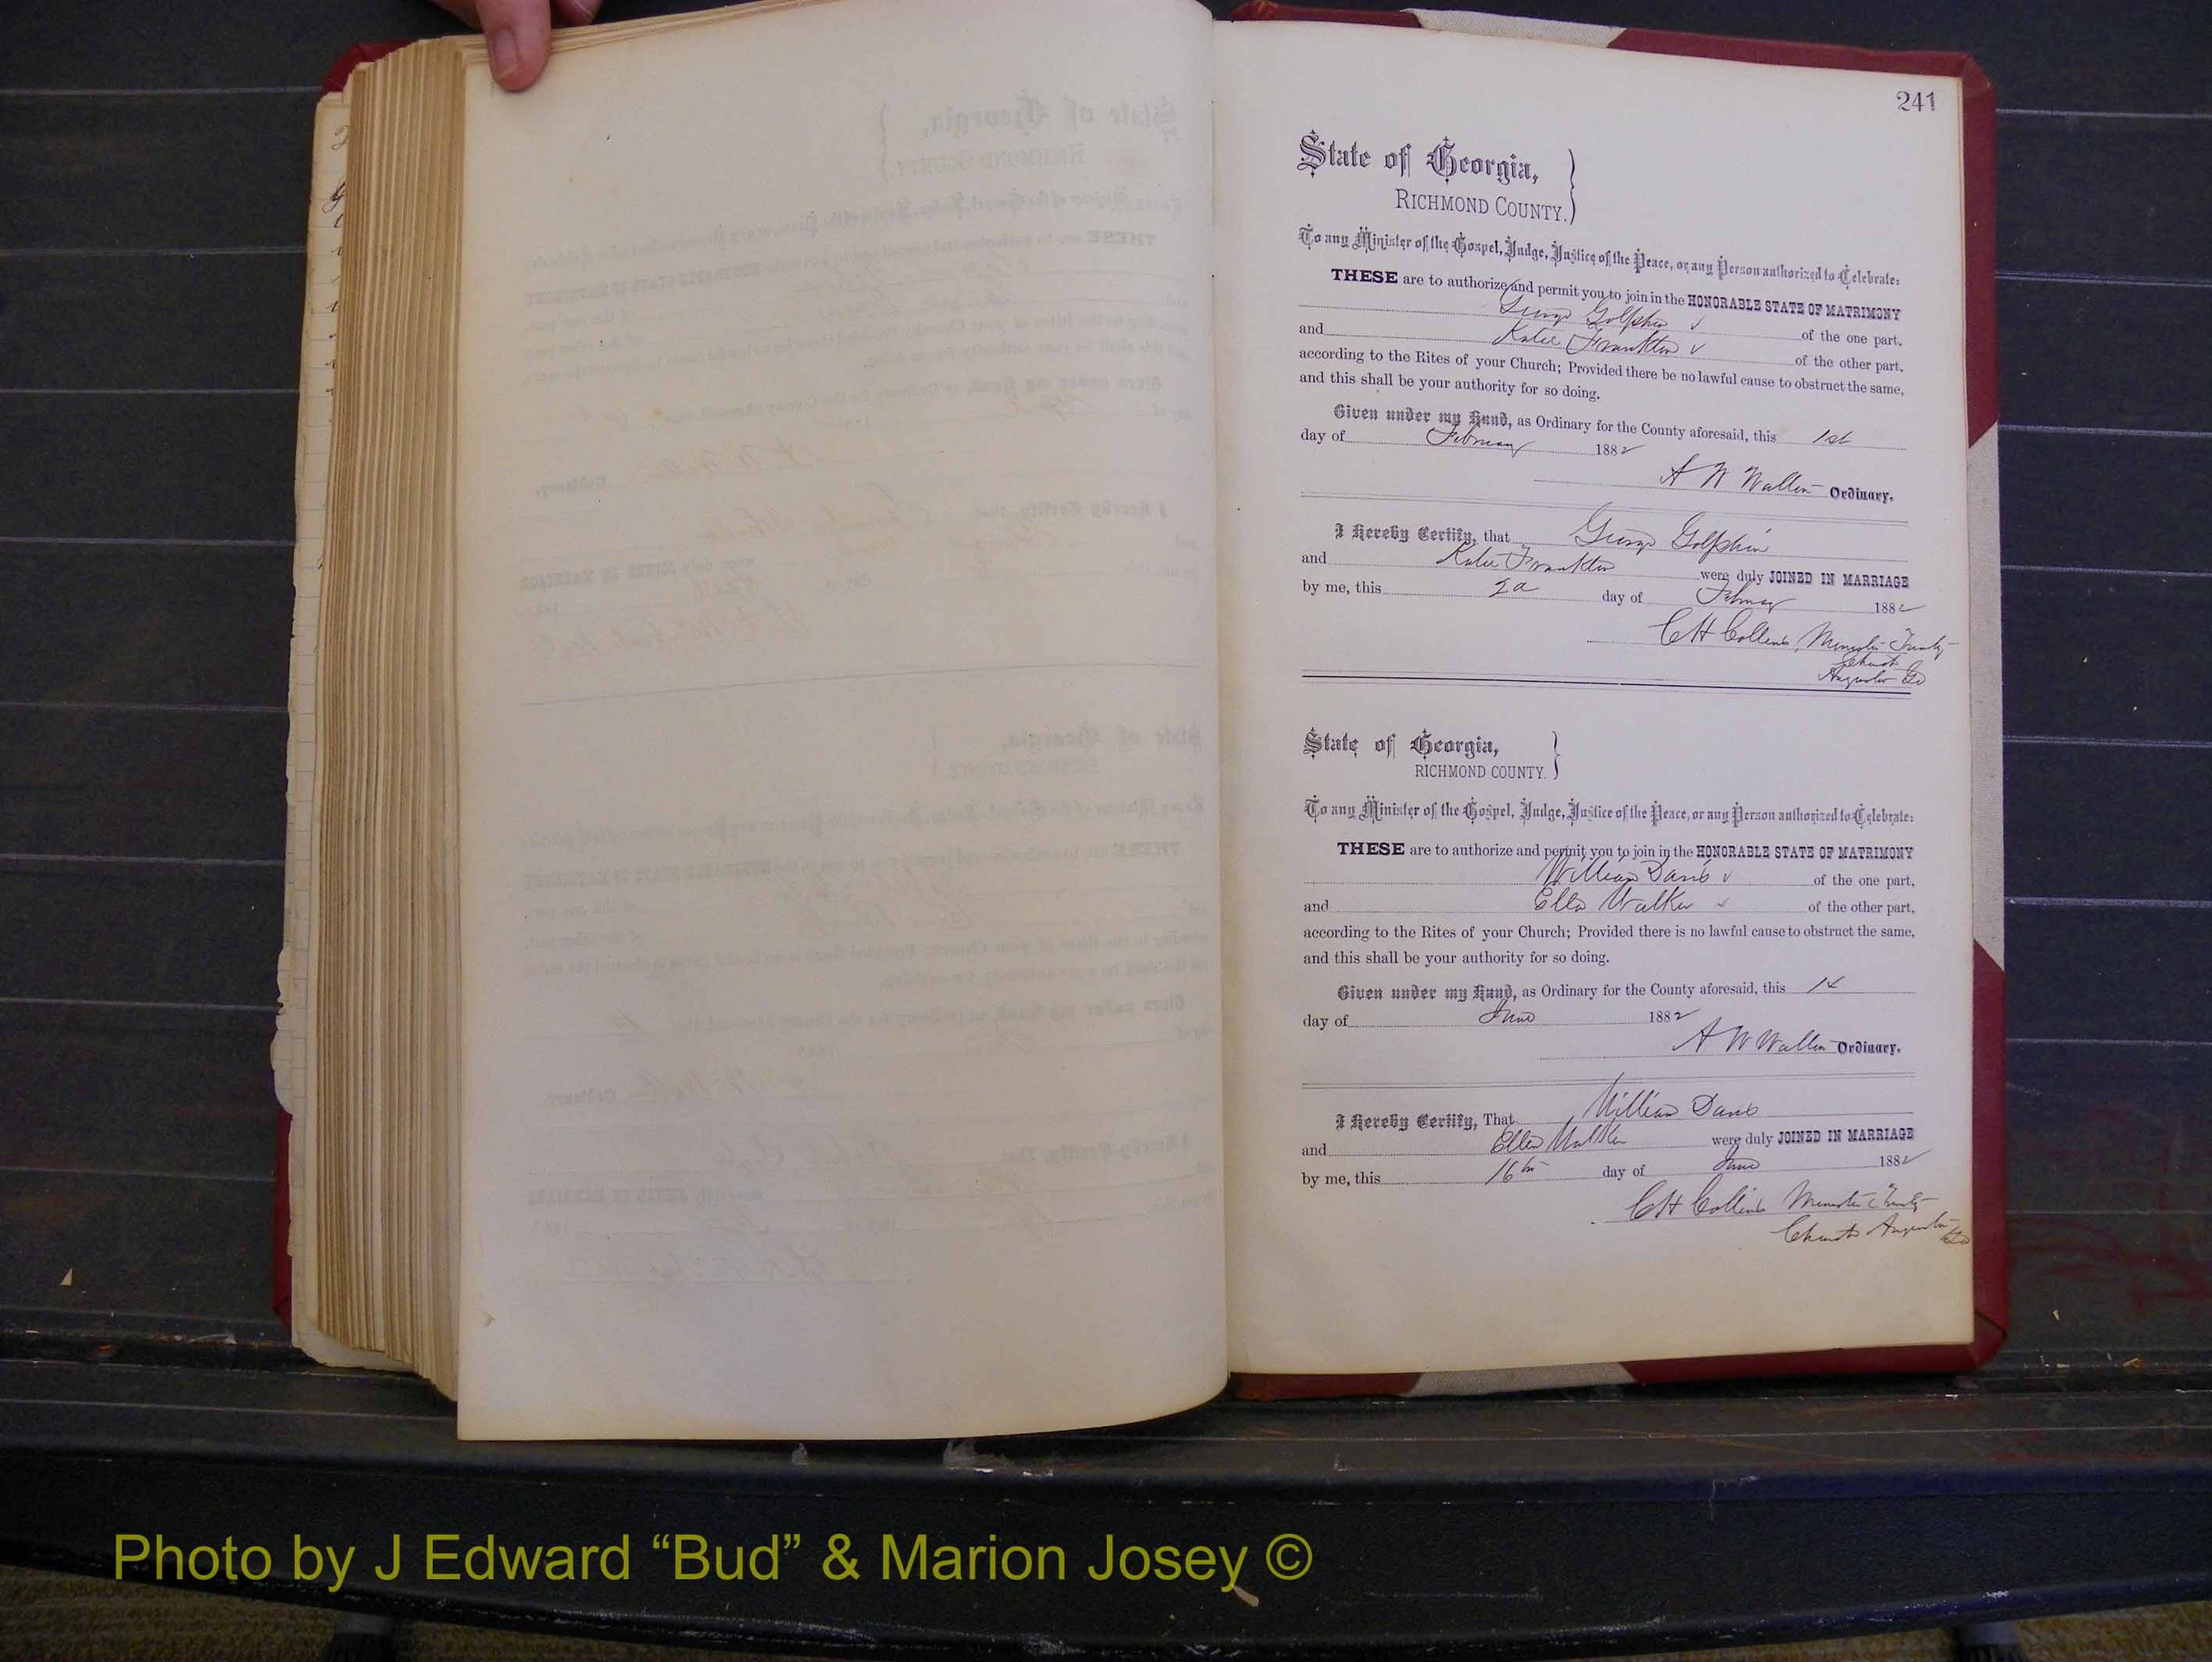 241
State of Georgia,
RICHMOND COUNTY.
To any Minister of the Gospel, Judge, Justice of the Peace, or any Person authorized to Celebrate:
THESE are to authorize and permit you to join in the HONORABLE STATE OF MATRIMONY
George Golphin of the one part,
and Katie Franklin of the other part,
according to the Rites of your Church; Provided there be no lawful cause to obstruct the same,
and this shall be your authority for so doing.
Given under my Hand, as Ordinary for the County aforesaid, this 1st
day of February 1882
A W Walton Ordinary.
I Hereby Certify, that George Golphin
and Katie Franklin were duly JOINED IN MARRIAGE
by me, this 2d day of February 1882
C H Collins, Minister Trinity
Church
Augusta Ga
State of Georgia,
RICHMOND COUNTY.
To any Minister of the Gospel, Judge, Justice of the Peace, or any Person authorized to Celebrate:
THESE are to authorize and permit you to join in the HONORABLE STATE OF MATRIMONY
William Davis of the one part,
and Ella Walker of the other part,
according to the Rites of your Church; Provided there is no lawful cause to obstruct the same,
and this shall be your authority for so doing.
Given under my Hand, as Ordinary for the County aforesaid, this 14
day of June 1882
A W Walton Ordinary.
I Hereby Certify, That William Davis
and Ella Walker were duly JOINED IN MARRIAGE
by me, this 16th day of June 1882
C H Collins Minister Trinity
Church Augusta
Ga
Photo by J Edward “Bud” & Marion Josey ©